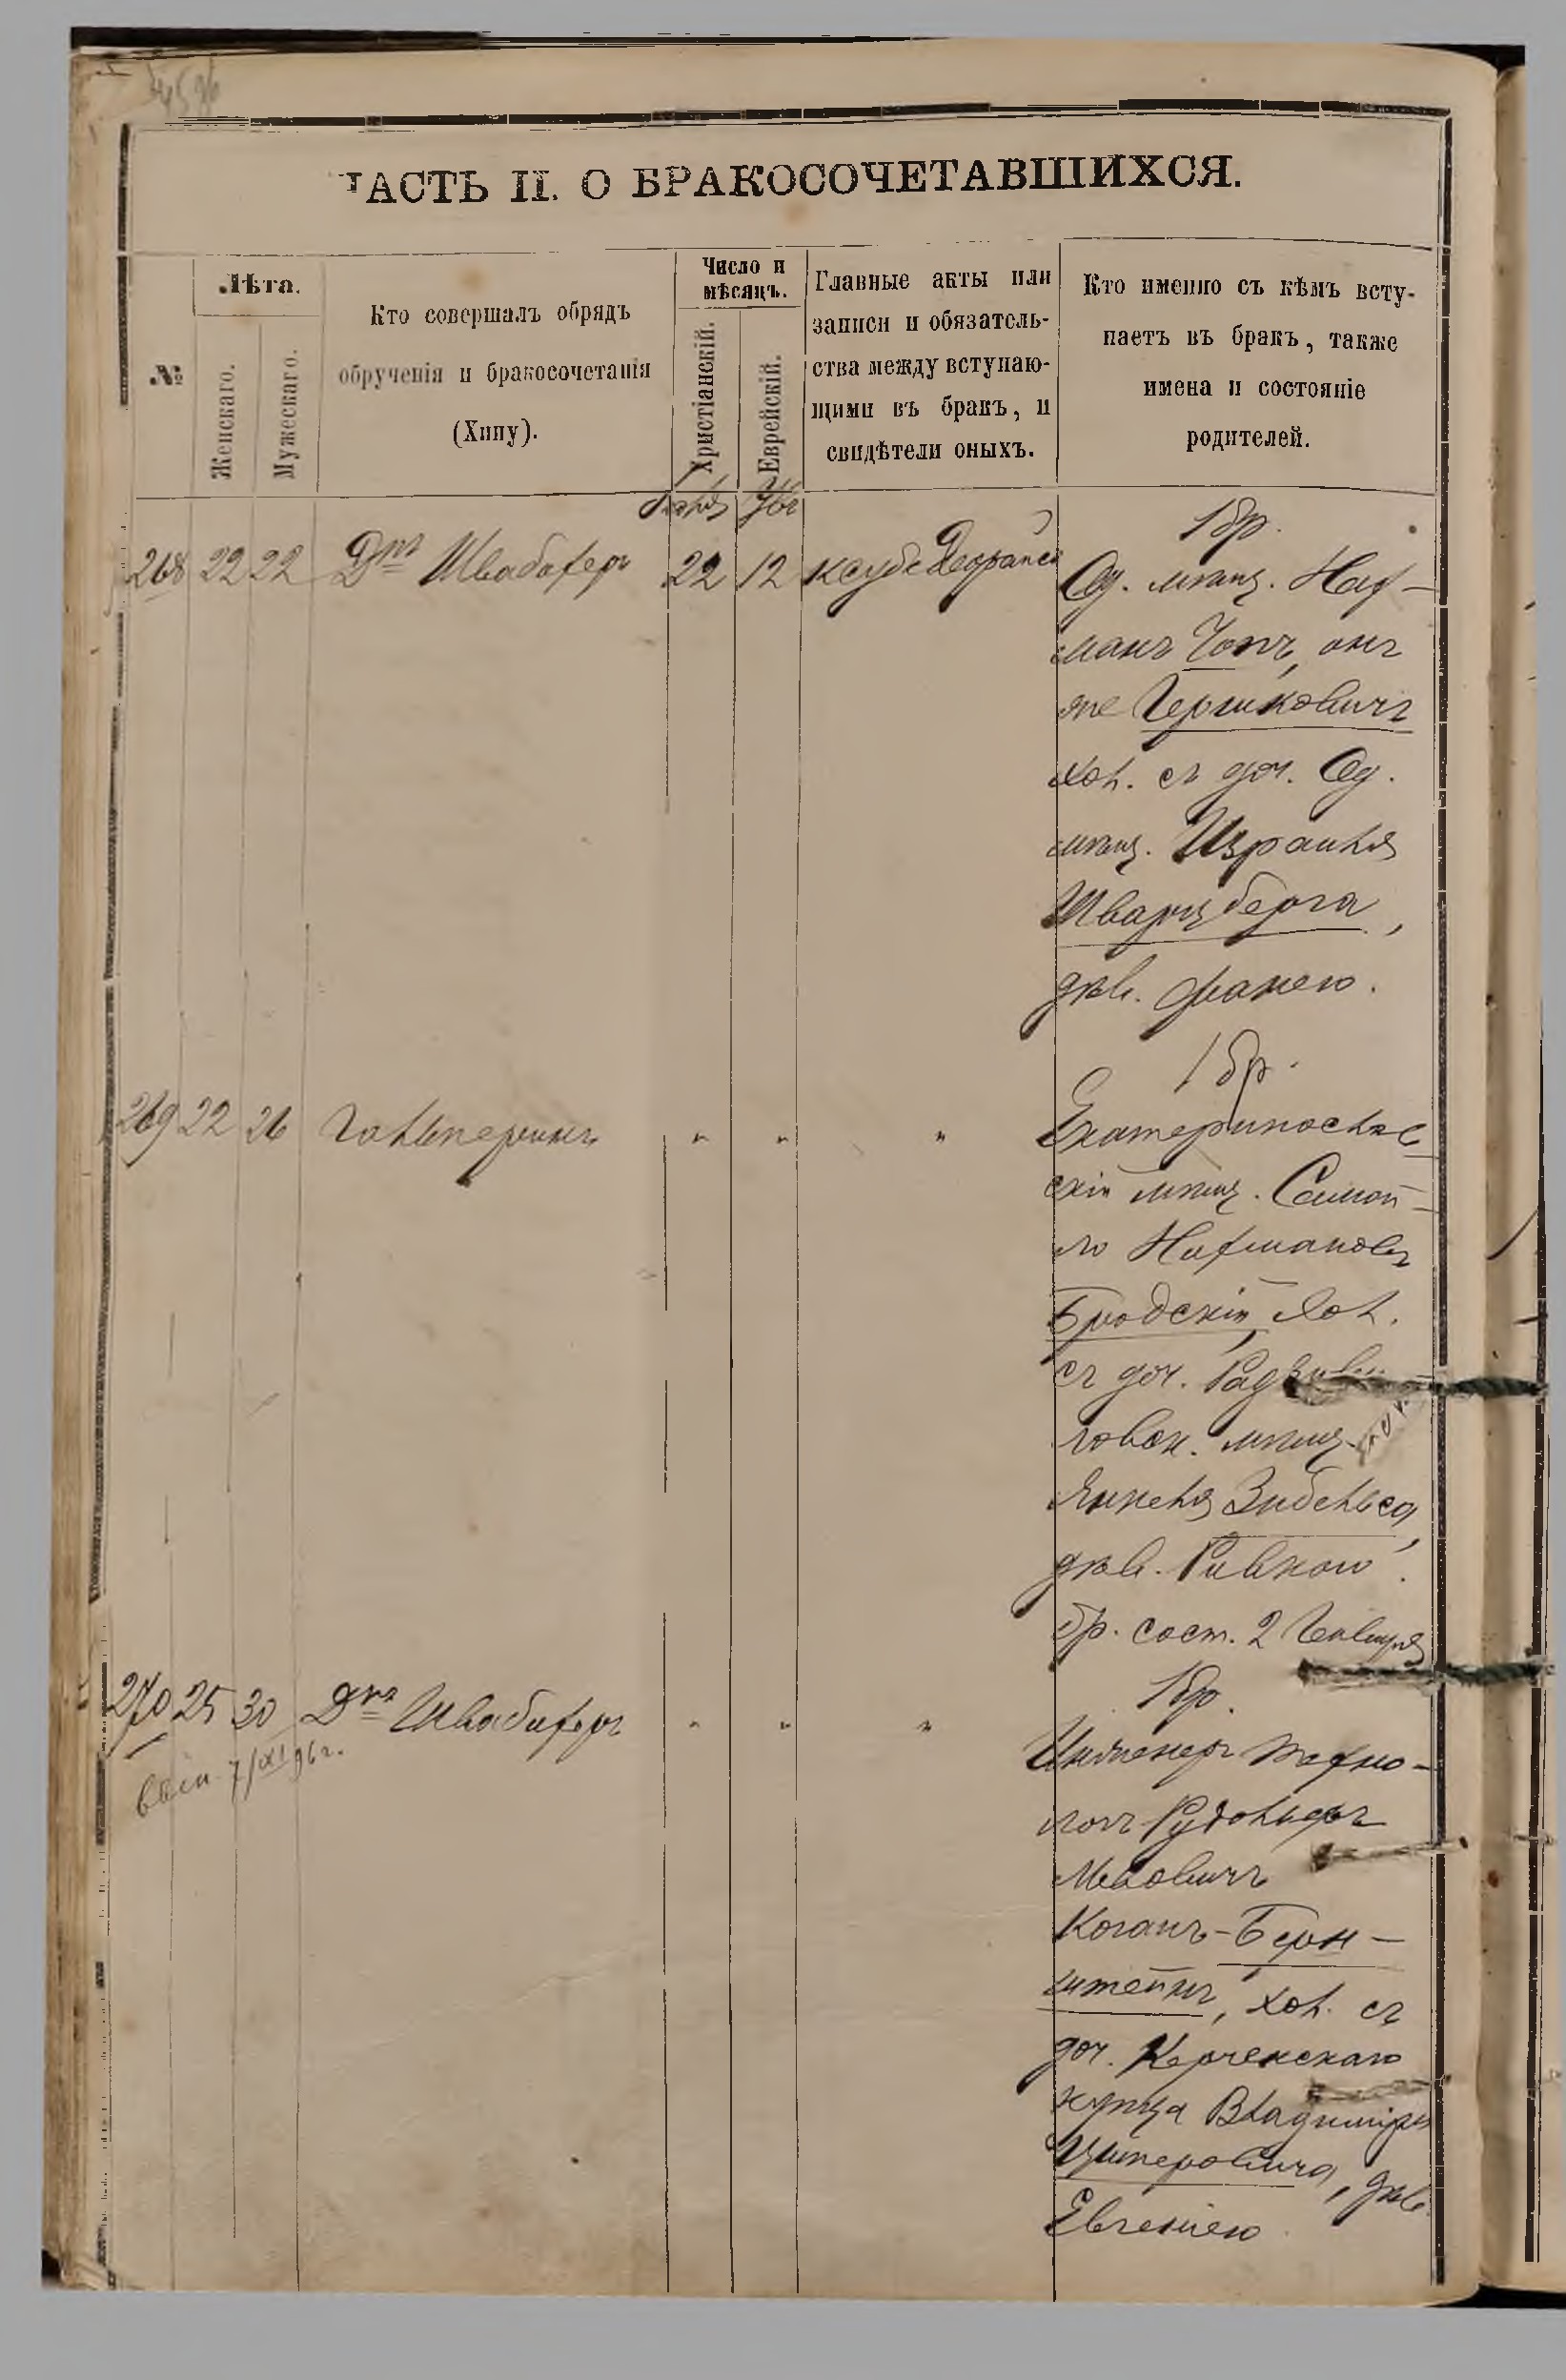 ЧАСТЬ II. О БРАКОСОЧЕТАВШИХСЯ.
№
Лѣта.
Женскаго.
Мужескаго.
Кто совершалъ обрядъ
обрученія и бракосочетанія
(Хипу).
Число и
мѣсяцъ.
Христіанскій.
Еврейскій.
Главные акты или
записи и обязатель-
ства между вступаю-
щими въ бракъ, и
свидѣтели оныхъ.
Кто именно съ кѣмъ всту-
паетъ въ бракъ, также
имена и состояніе
родителей.
268 22 22 Дръ Швабахеръ 22 12
1 бр.
Од. мѣщ. Нах-
манъ онъ
же Гершковичъ
хол. съ доч. Од.
мѣщ. Израиля
Шварцберга,
дѣв. Фанею.
269 22 26 Гальперинъ " " "
1 бр.
Екатеринослав
скій мѣщ. Самой-
ло Нахмановъ
Бродскій, хол.
съ доч.
ловск. мѣщ.
Янкеля Зибельса,
дѣв. Ривкою.
бр. сост. 2 Января
270 25 30 Дръ Швабахеръ " " "
1 бр.
Инженеръ техно-
логъ Рудольфъ
Коганъ-Берн-
штейнъ, хол. съ
доч. Керченскаго
купца Владиміра
Циперовича, дѣв.
Евгеніею